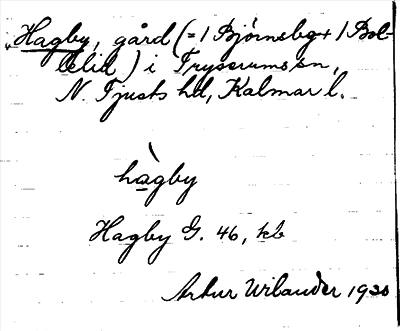 Hagby, gård (= 1 Björnsbg + 1 Bol-
lelid) i Tryserums sn,
N. Tjusts hd, Kalmar l.
hàgby
Hagby G. 46, kb
Artur Wilander 1930